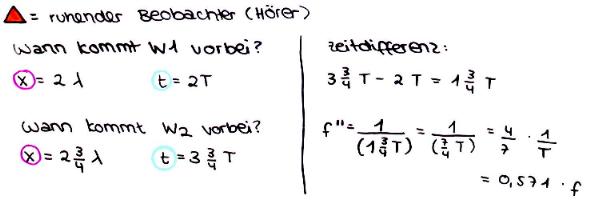 = ruhender Beobachter (Hörer)
Wann kommt W1 vorbei?
x = 2 λ t = 2T
Wann kommt W2 vorbei?
x = 2 3/4 λ t = 3 3/4 T
Zeitdifferenz:
3 3/4 T - 2 T = 1 3/4 T
f'' = 1/(1 3/4 T) = 1/(7/4 T) = 4/7 · 1/T
= 0,571 · f